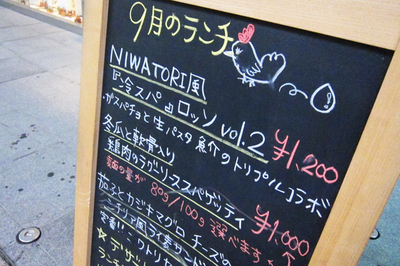 9月のランチ
NIWATORI風
『冷スパ』ロッソ vol.2
ガスパチョと生パスタ 魚介のトリプルコラボ
¥1,200
冬瓜と軟骨入り
鶏肉のラグソーススパゲッティ
麺の量が 80g/100g 選べます
¥1,000
茄子とカジキマグロ チーズの
シチリア風
ニワトリ
★デザ
ランチ